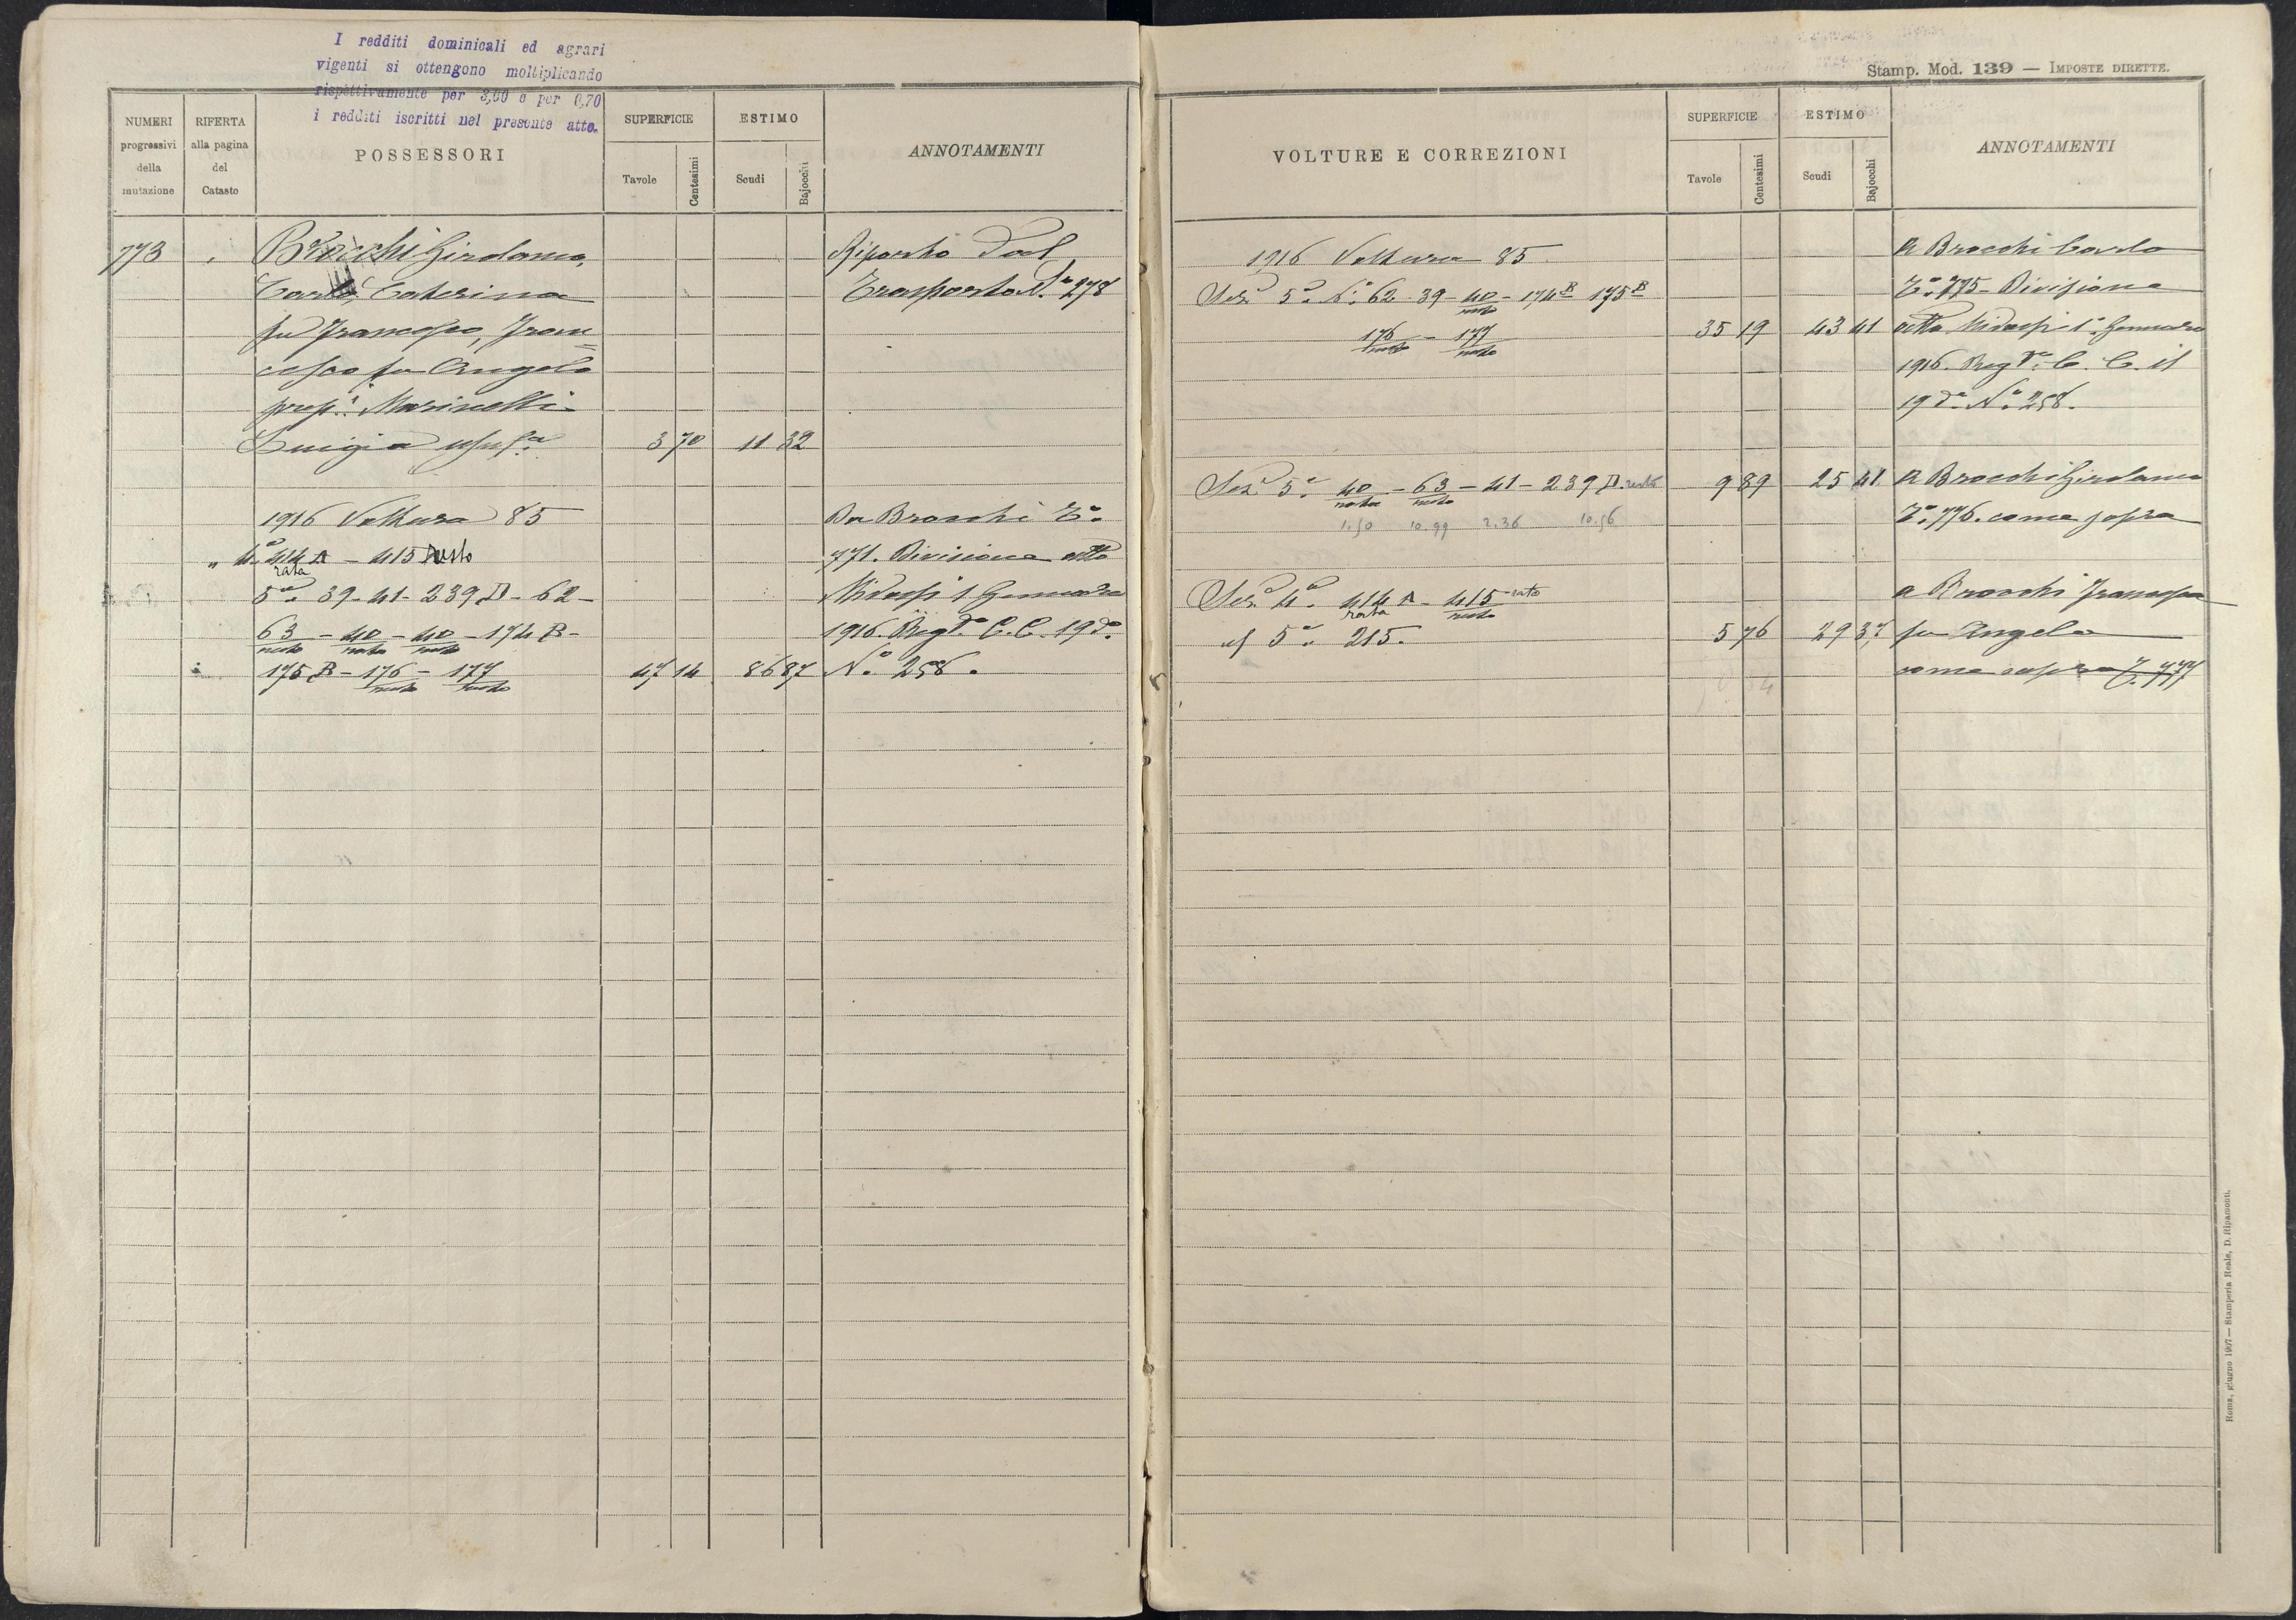 I redditi dominicali ed agrari
vigenti si ottengono moltiplicando
rispettivamente per 3,60 e per 0,70
i redditi iscritti nel presente atto.
NUMERI progressivi della mutazione
RIFERTA alla pagina del Catasto
POSSESSORI
SUPERFICIE
Tavole
Centesimi
ESTIMO
Scudi
Bajocchi
ANNOTAMENTI
773 Brocchi Girolamo, Riporto dal
Carlo Caterina Trasporto N.° 278
fu Francesco, Fran
cesco fu Angelo
prop.i Marinelli
Luigia usuf.a 3 70 11 32
1916 Voltura 85 Da Brocchi T.°
" 4.a 414 A rata - 415 resto 771. Divisione atto
5.a 39-41-239 D-62- 1 Gennaro
63 resto - 40 rata - 40 resto - 174 B- 1916. Reg.to C.C. 19 d.°
175 B-176 resto - 177 resto 47 14 86 87 N.° 258.
Stamp. Mod. 139 — IMPOSTE DIRETTE.
VOLTURE E CORREZIONI
SUPERFICIE
Tavole
Centesimi
ESTIMO
Scudi
Bajocchi
ANNOTAMENTI
1916 Voltura 85 A Brocchi Carlo
Sez.e 5.a N.° 62-39-40 resto - 174 B 175 B T.° 775- Divisione
176 resto - 177 resto 35 19 43 41 atto 1.° Gennaro
1916. Reg.to C. C. il
19 d.° N.° 258.
Sez.e 5.a 40 rata - 63 resto - 41-239 D. resto 9 89 25 41 A Brocchi Girolamo
1.50 10.99 2.36 10.56 T.° 776. come sopra
Sez.e 4.a 414 A rata - 415 resto rata a Brocchi Francesco
5.a 215. 5 76 29 37 fu Angelo
come sopra T. 777
Roma, giugno 1907 — Stamperia Reale, D. Ripamonti.